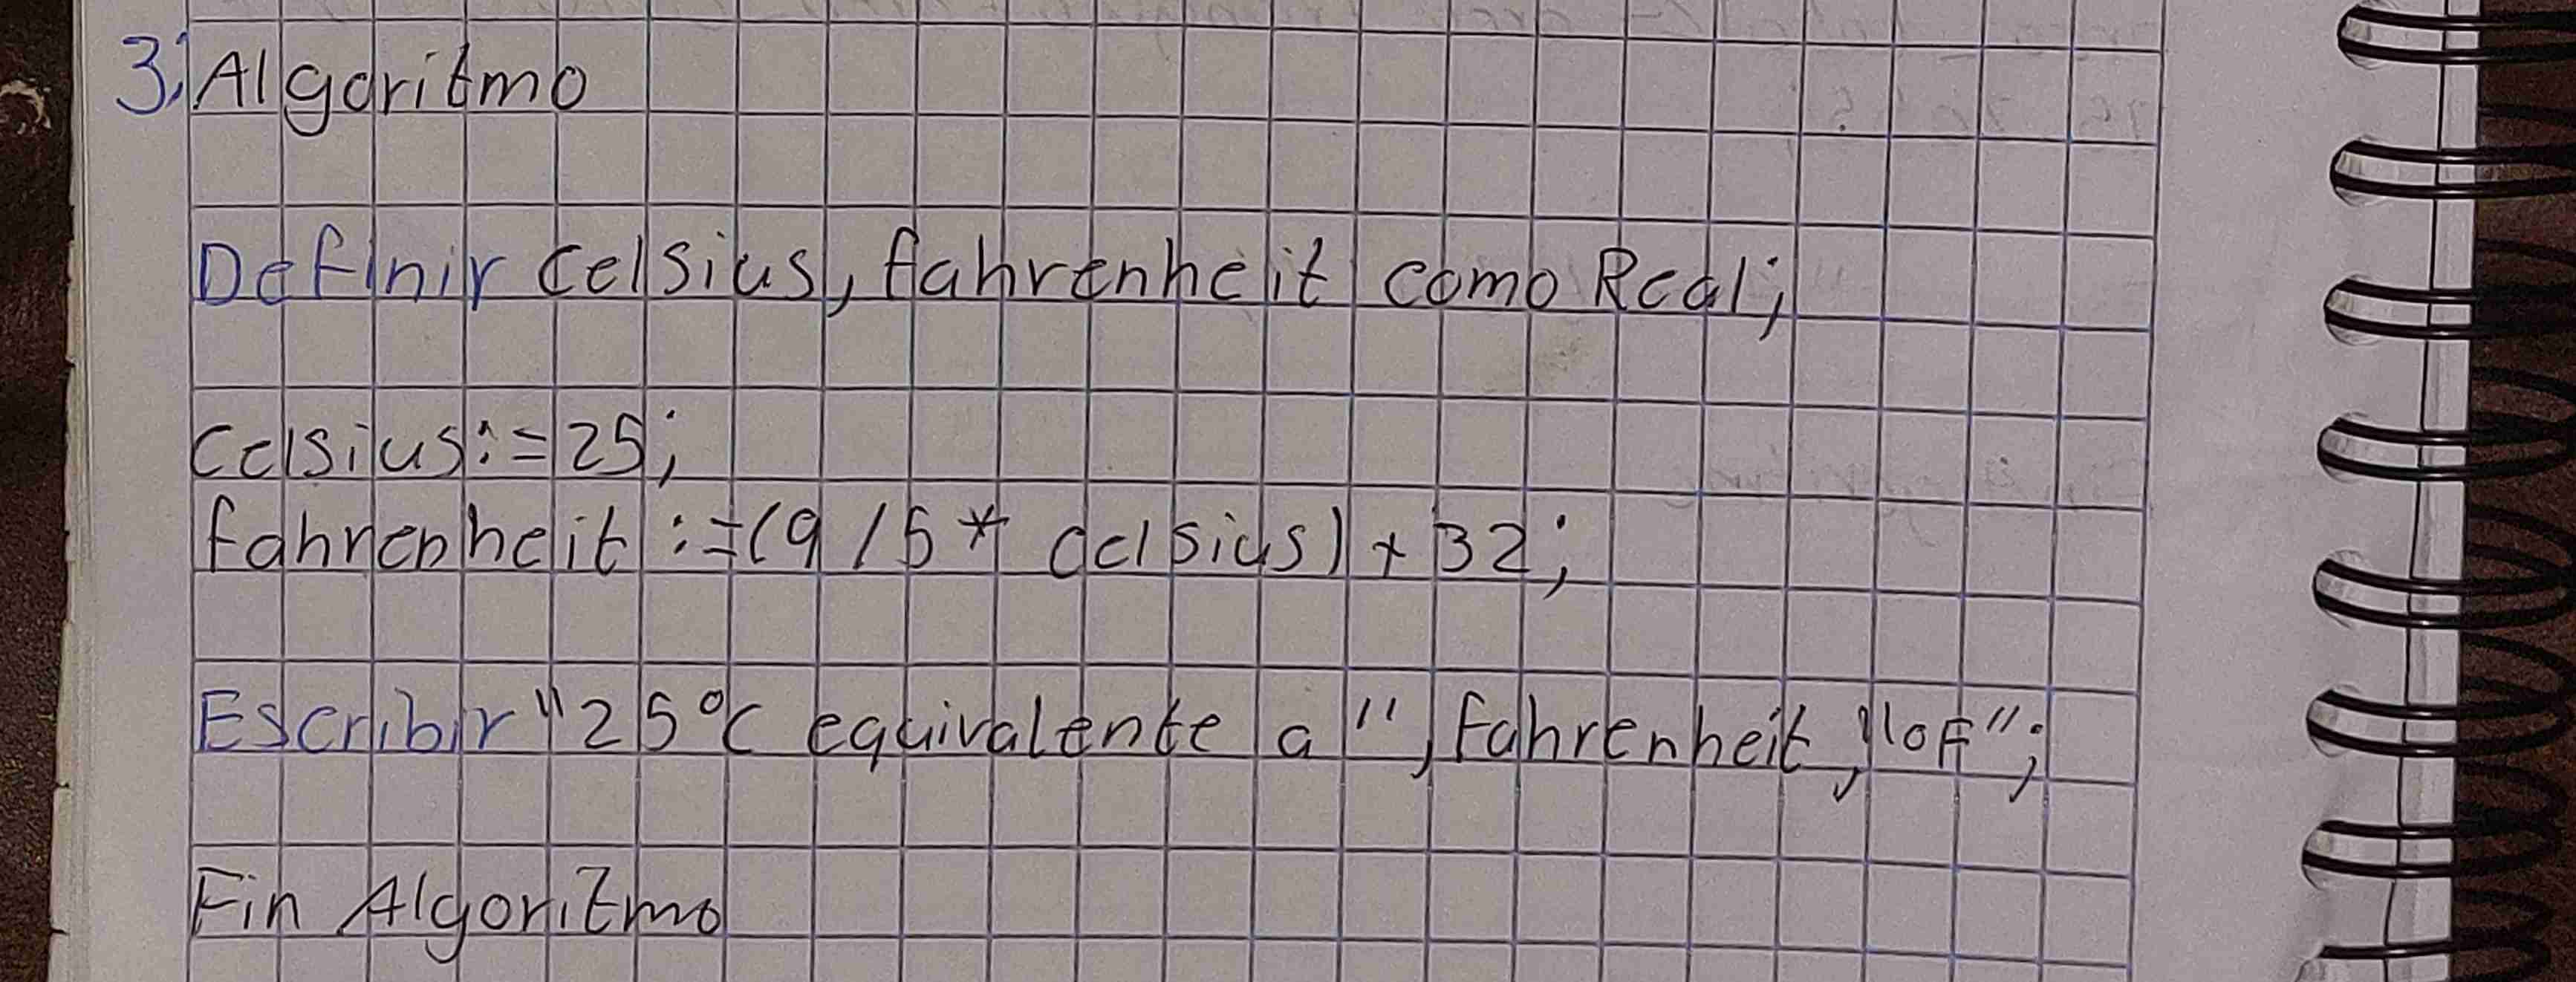 3. Algoritmo
Definir celsius, fahrenheit como Real;
celsius := 25;
fahrenheit := (9 / 5 * celsius) + 32;
Escribir "25°C equivalente a", fahrenheit, "°F";
Fin Algoritmo